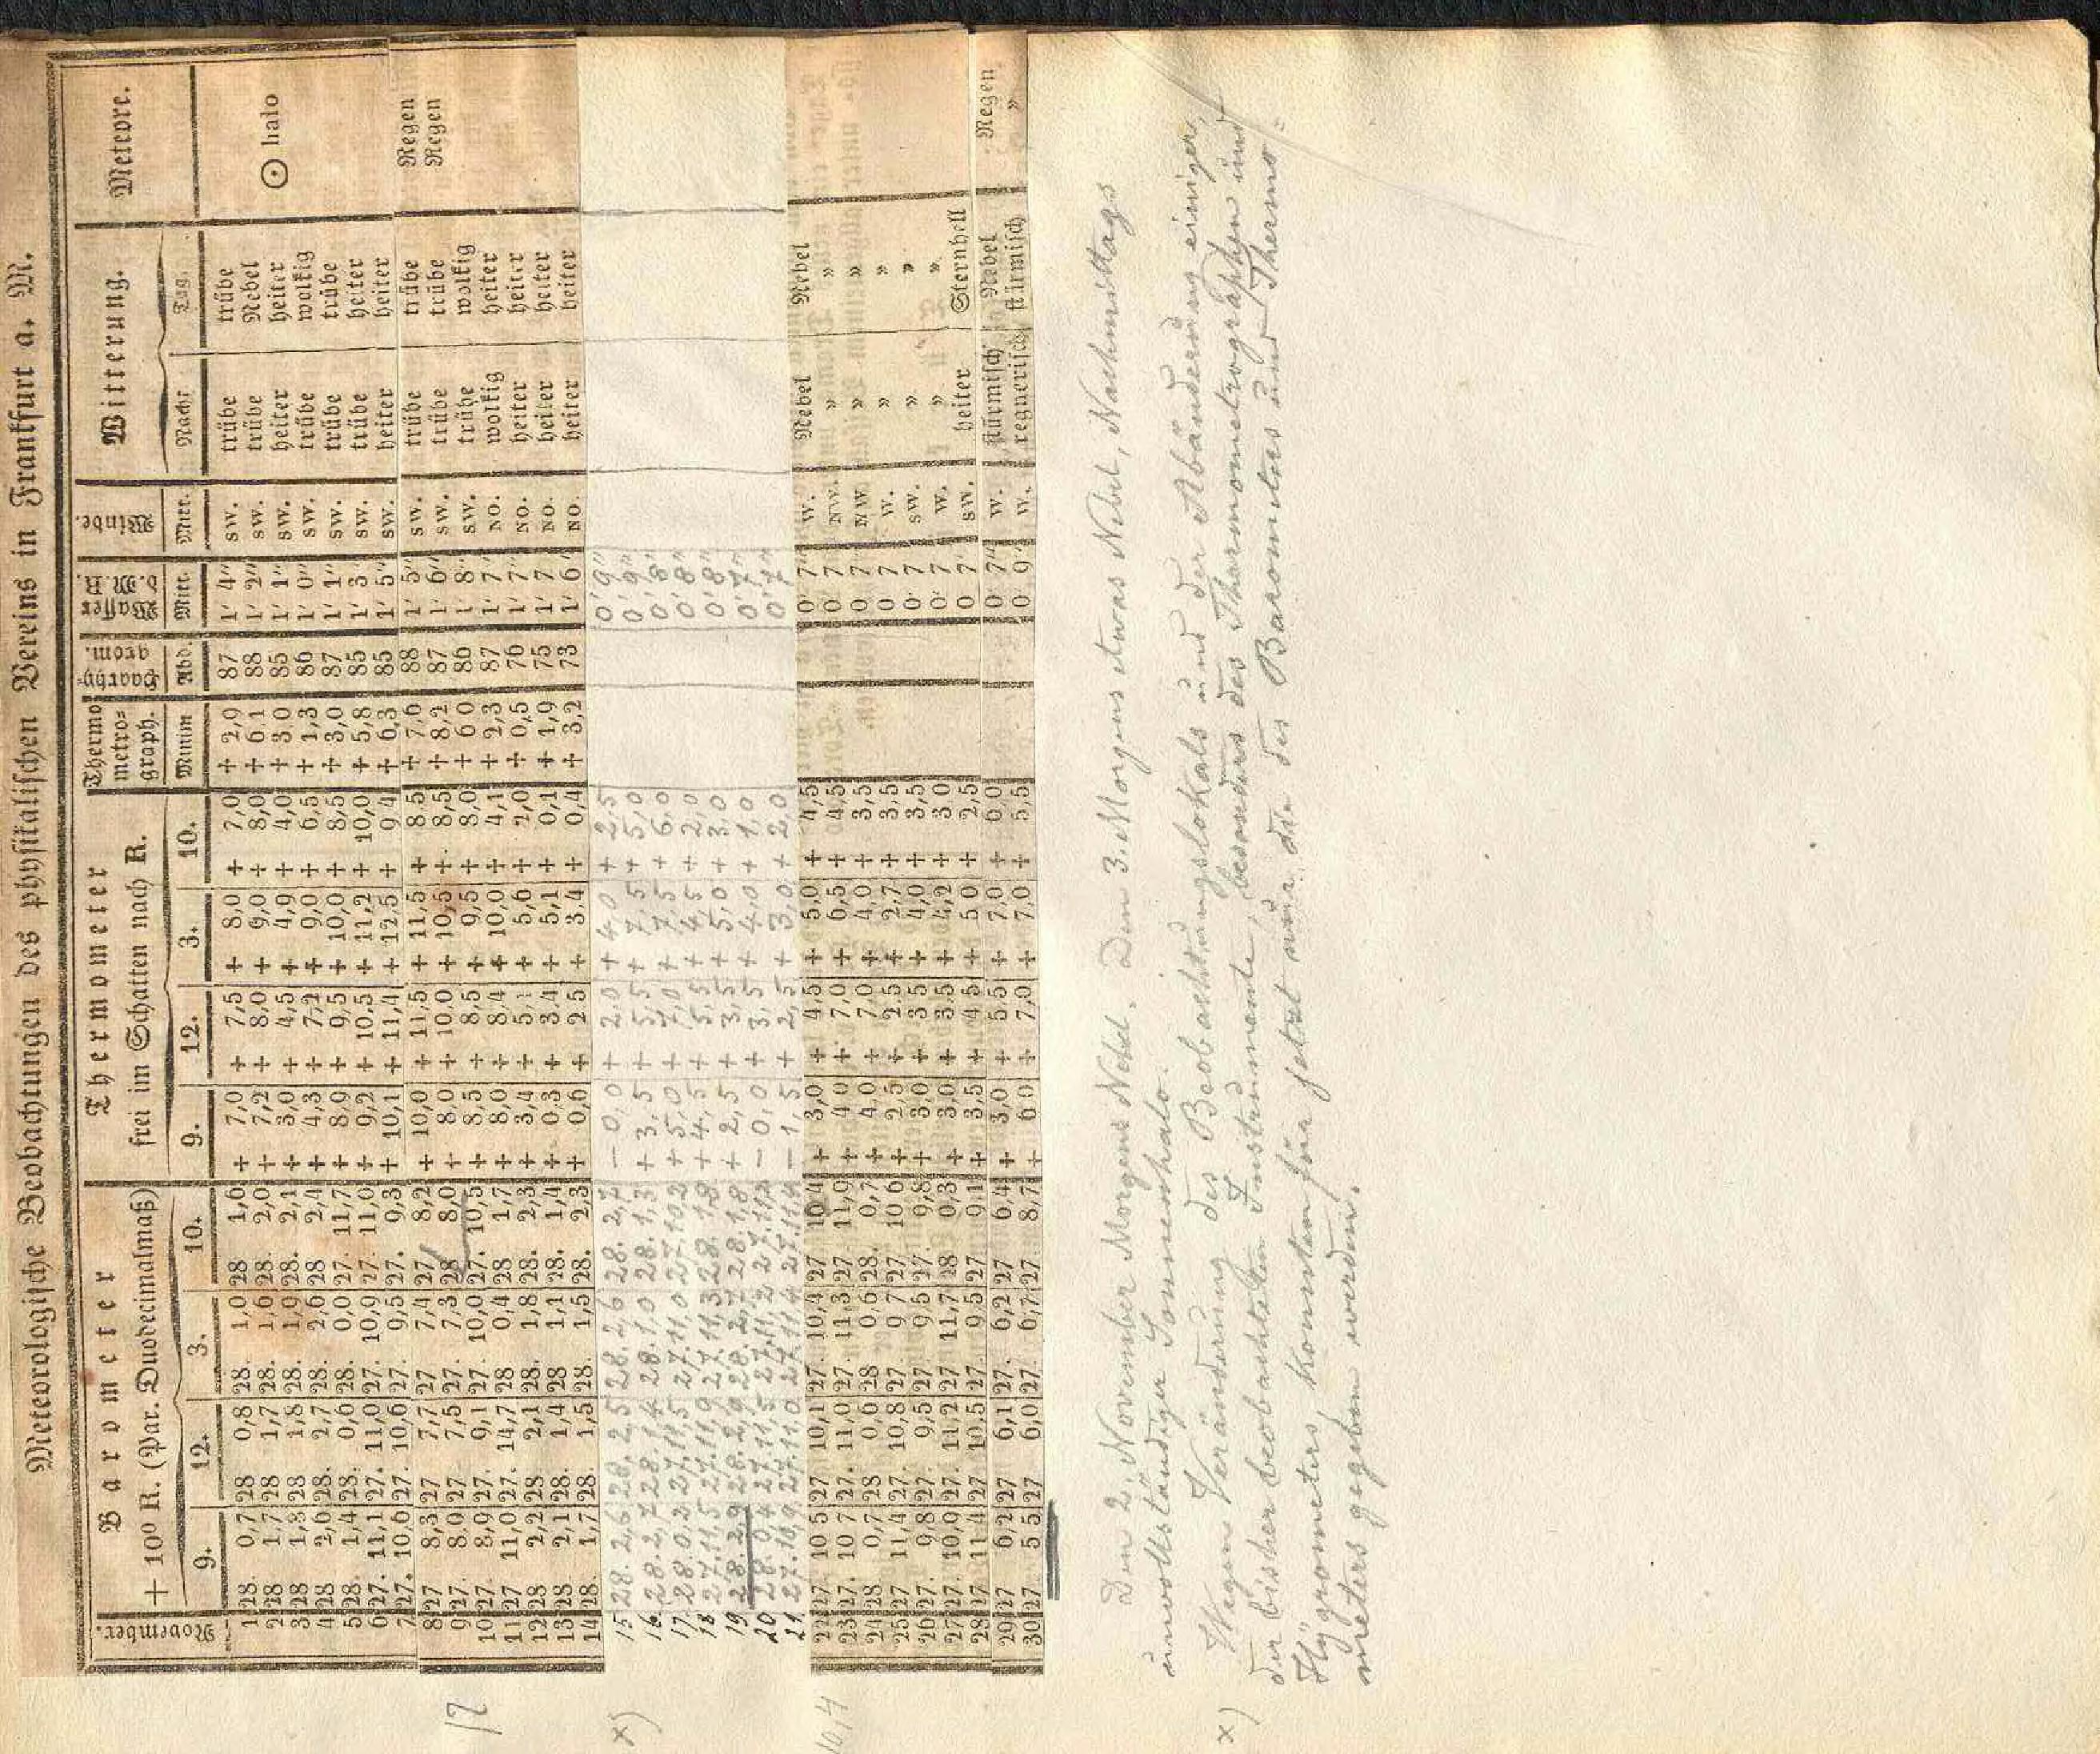 Meteorologische Beobachtungen des physikalischen Vereins in Frankfurt a. M.
November. | Barometer + 10° R. (Par. Duodecimalmaß) | Thermometer frei im Schatten nach R. | Thermometrograph. | Haarhygrom. | Wasser d. M H. | Winde. | Witterung. | Meteore.
9. | 12. | 3. | 10. | 9. | 12. | 3. | 10. | Minim | Abd. | Mitt. | Mitt. | Nacht | Tag.
1 | 28. 0,7 | 28 0,8 | 28. 1,0 | 28 1,6 | + 7,0 | + 7,5 | + 8,0 | + 7,0 | + 2,9 | 87 | 1' 4" | SW. | trübe | trübe
2 | 28 1,7 | 28 1,7 | 28. 1,6 | 28. 2,0 | + 7,2 | + 8,0 | + 9,0 | + 8,0 | + 6 1 | 88 | 1' 2" | SW. | trübe | Nebel
3 | 28 1,3 | 28 1,8 | 28. 1,9 | 28. 2,1 | + 3,0 | + 4,5 | + 4,9 | + 4,0 | + 3 0 | 85 | 1' 1" | SW. | heiter | heiter | ☉ halo
4 | 28 2,6 | 28. 2,7 | 28. 2,6 | 28 2,4 | + 4,3 | + 7,2 | + 9,0 | + 6,5 | + 1,3 | 86 | 1' 0" | SW. | trübe | wolkig
5 | 28. 1,4 | 28. 0,6 | 28. 0,0 | 27. 11,7 | + 8,9 | + 9,5 | + 10,0 | + 8,5 | + 3,0 | 87 | 1' 1" | SW. | trübe | trübe
6 | 27. 11,1 | 27. 11,0 | 27. 10,9 | 27. 11,0 | + 9,2 | + 10,5 | + 11,2 | + 10,0 | + 5,8 | 85 | 1' 3" | SW. | trübe | heiter
7 | 27. 10,6 | 27. 10,6 | 27. 9,5 | 27. 9,3 | + 10,1 | + 11,4 | + 12,5 | + 9,4 | + 6,3 | 85 | 1' 5" | SW. | heiter | heiter
8 | 27 8,3 | 27 7,7 | 27 7,4 | 27 8,2 | + 10,0 | + 11,5 | + 11,5 | + 8,5 | + 7,6 | 88 | 1' 5" | SW. | trübe | trübe | Regen
9 | 27. 8,0 | 27. 7,5 | 27. 7,3 | 28 8,0 | + 8 0 | + 10,0 | + 10,5 | + 8,5 | + 8,2 | 87 | 1' 6" | SW. | trübe | trübe | Regen
10 | 27. 8,9 | 27. 9,1 | 27. 10,0 | 27. 10,5 | + 8,5 | + 8,5 | + 9,5 | + 8,0 | + 6 0 | 86 | 1 8" | SW. | trübe | wolkig
11 | 27 11,0 | 27. 14,7 | 28 0,4 | 28 1,7 | + 8,0 | + 8,4 | + 10,0 | + 4,1 | + 2,3 | 87 | 1' 7" | NO. | wolkig | heiter
12 | 28 2,2 | 28 2,1 | 28. 1,8 | 28. 2,3 | + 3,4 | + 5,1 | + 5,6 | + 2,0 | + 0,5 | 76 | 1' 7" | NO. | heiter | heiter
13 | 28 2,1 | 28. 1,4 | 28 1,1 | 28. 1,4 | + 0 3 | + 3,4 | + 5,1 | + 0,1 | + 1,9 | 75 | 1' 7 | NO. | heiter | heiter
14 | 28. 1,7 | 28. 1,5 | 28. 1,5 | 28. 2,3 | + 0,6 | + 2 5 | + 3,4 | + 0,4 | + 3,2 | 73 | 1' 6" | NO. | heiter | heiter
15 | 28. 2,6 | 28. 2,5 | 28. 2,6 | 28. 2,2 | – 0,0 | + 2,0 | + 4,0 | + 2,5 | 0' 9"
16. | 28. 2,7 | 28. 1,4 | 28. 1,0 | 28. 1,3 | + 3,5 | + 5,5 | + 7,5 | + 5,0 | 0' 9"
17. | 28. 0,2 | 27. 11,5 | 27. 11,0 | 27. 10,2 | + 5,0 | + 7,0 | + 7,5 | + 6,0 | 0' 8"
18 | 27. 11,5 | 27. 11,9 | 27. 11,3 | 28. 1,8 | + 4,5 | + 5,5 | + 4,5 | + 2,0 | 0' 8"
19. | 28. 2,9 | 28. 2,9 | 28. 2,7 | 28. 1,8 | + 2,5 | + 3,5 | + 5,0 | + 3,0 | 0' 8"
20 | 28. 0,4 | 27. 11,5 | 27. 11,2 | 27. 11,2 | – 0,0 | + 3,5 | + 4,0 | + 1,0 | 0' 7"
21. | 27. 10,9 | 27. 11,0 | 27. 11,4 | 27. 11,9 | – 1,5 | + 2,5 | + 3,0 | + 2,0 | 0' 7"
22 | 27 10 5 | 27 10,1 | 27. 10,4 | 27 10 4 | + 3,0 | + 4,5 | + 5,0 | + 4,5 | 0' 7" | W. | Nebel | Nebel
23 | 27. 10 7 | 27. 11,0 | 27. 11,3 | 27. 11,9 | + 4 0 | + 7,0 | + 6,5 | + 4,5 | 0 7" | NW. | » | »
24 | 28 0,7 | 28 0,6 | 28 0,6 | 28. 0,7 | + 4,0 | + 7,0 | + 4,0 | + 3,5 | 0 7" | NW | » | »
25 | 27 11,4 | 27. 10,8 | 27. 9 7 | 27. 10 6 | + 2 5 | + 2.5 | + 2,7 | + 3,5 | 0 7 | W. | » | »
26 | 27. 9,8 | 27. 9,5 | 27. 9,5 | 27. 9,8 | + 3,0 | + 3 5 | + 4,0 | + 3,5 | 0' 7 | SW. | » | »
27 | 27. 10,9 | 27. 11,2 | 27 11,7 | 28 0,3 | + 3,0 | + 3,5 | + 4,2 | + 3 0 | 0' 7 | W. | » | »
28 | 27 11 4 | 27 10,5 | 27. 9 5 | 27 9,1 | + 3,5 | + 4 5 | + 5 0 | + 2,5 | 0 7' | SW. | heiter | Sternhell
29 | 27 6,2 | 27 6,1 | 27. 6,2 | 27 6,4 | + 3,0 | + 5,5 | + 7,0 | + 6,0 | 0 7" | W. | stürmisch | Nebel | Regen
30 | 27. 5 5 | 27 6,0 | 27. 6,7 | 27. 8,7 | + 6 0 | + 7,0 | + 7,0 | + 5,5 | 0 9" | W. | regnerisch | stürmisch | »
12
x)
10,4
Den 2. November Morgens Nebel. Den 3. Morgens etwas Nebel, Nachmittags
unvollständiger Sonnenhalo.
x) Wegen Veränderung des Beobachtungslokals und der Abänderung einiger
der bisher beobachteten Instrumente, besonders des Thermometrographen und
Hygrometers, konnten für jetzt nur die des Barometers und Thermo-
meters gegeben werden.